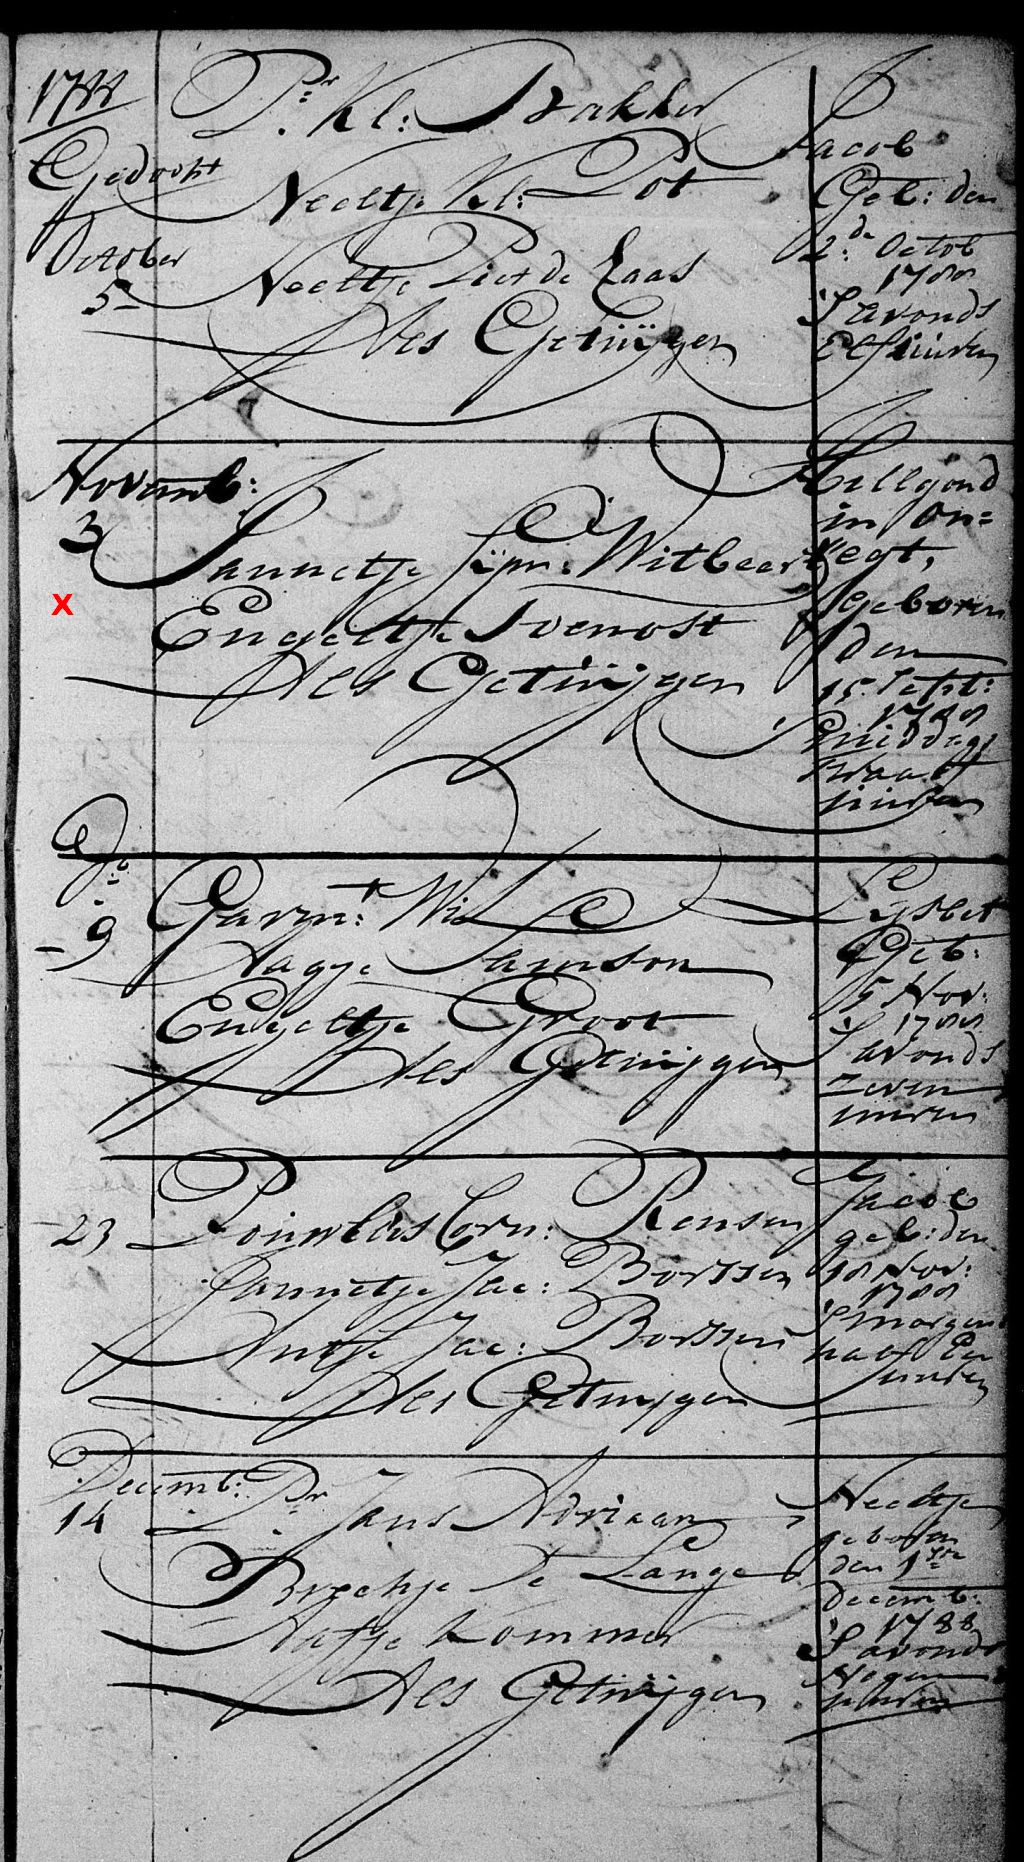 1788
Gedoopt
October
5
Pr. Kl: Bakker
Neeltje Kl: Pot
Neeltje Piet de Laas
Als Getuijgen
Jacob
Geb: den
2de Octob
1788
S avonds
Elf uuren
Novemb:
3
x
Jannetje Sijm: Witbaert
Engeltje
Als Getuijgen
Hillgond
in On=
Regt,
geboren
den
15 Sept:
1788
smiddags
uuren
Do
9
Garm: Wit
Aagje Samson
Engeltje Groot
Als Getuijgen
Lijsbet
Geb:
5 Nov:
1788
S avonds
zeven
uuren
23
Pouwelis Corn: Rensen
Jannetje Jac: Borssen
Antje Jac: Borssen
Als Getuijgen
Jacob
geb: den
18 Nov:
1788
Smorgens
half Een
uuren
Decemb:
14
Pr Jans Adriaan
Breghje De Lange
Aafje Kommer
Als Getuijgen
Neeltje
geboren
den 1ste
Decemb:
1788
S avonds
Negen
uuren